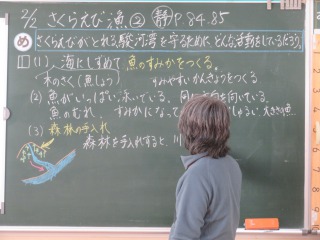 2/2 さくらえび漁② 静 P.84.85
め さくらえびがとれる駿河湾を守るために、どんな活動をしているだろう。
(1) 海にしずめて 魚のすみかをつくる。
木のさく(魚しょう) すみやすいかんきょうをつくる
(2) 魚がいっぱい泳いでいる。同じ方向を向いている。
魚のむれ すみかになって 大きさの魚
(3) 森林の手入れ
森林を手入れすると、川